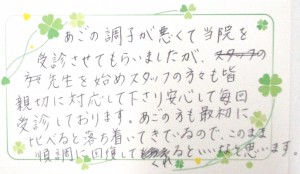 あごの調子が悪くて当院を
受診させてもらいましたが、
先生を始めスタッフの方々も皆
親切に対応して下さり安心して毎回
受診しております。あごの方も最初に
比べると落ち着いてきているので、このまま
順調に回復してくれるといいなと思います。